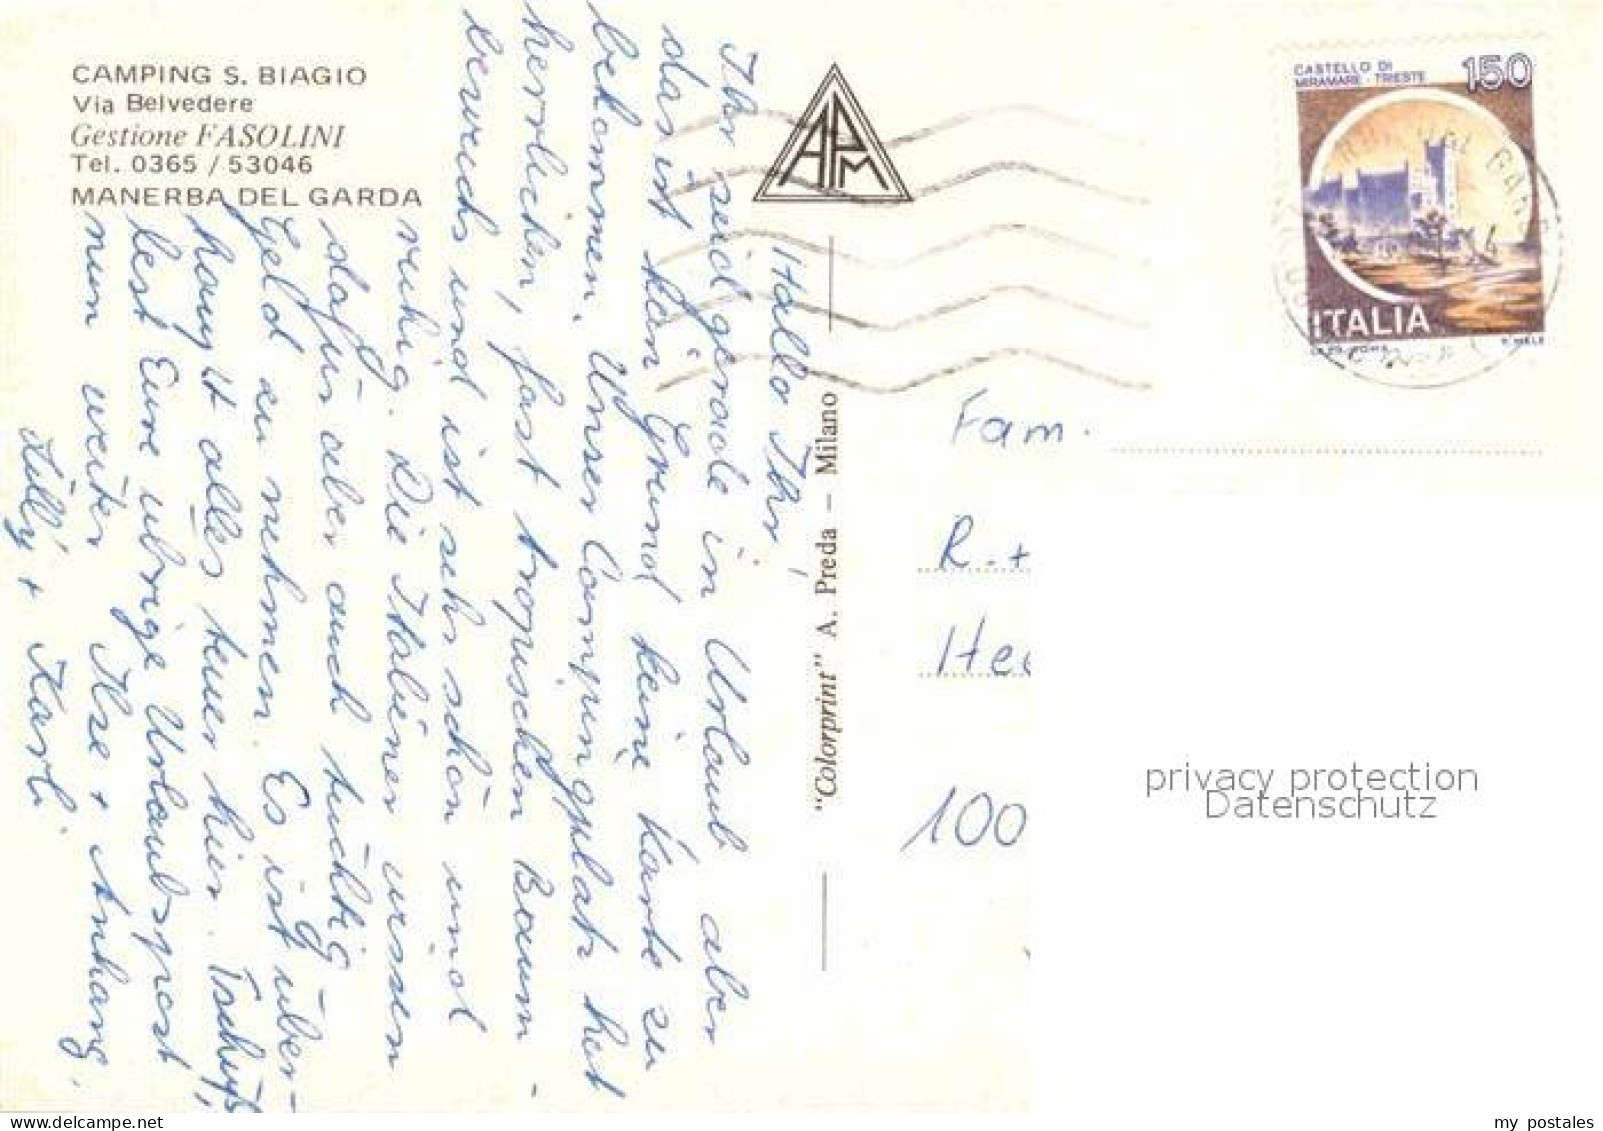 CAMPING S. BIAGIO
Via Belvedere
Gestione FASOLINI
Tel. 0365 / 53046
MANERBA DEL GARDA
Hallo Ihr
Ihr seid gerade in Urlaub aber
das ist kein Grund keine Karte zu
bekommen. Unser Campingplatz hat
herrlichen, fast tropischen Baum-
bewuchs und ist sehr schön und
ruhig. Die Italiener wissen
dafür aber auch tüchtig
Geld zu nehmen. Es ist über-
haupt alles teuer hier. Tschüß,
lest Eure übrige Urlaubspost
nun weiter Ilse + Anhang,
Lilly + Karli
"Colorprint" A. Preda — Milano
APM
CASTELLO DI
MIRAMARE - TRIESTE
150
ITALIA
Fam.
R. +
Hee
100
privacy protection
Datenschutz
my postales